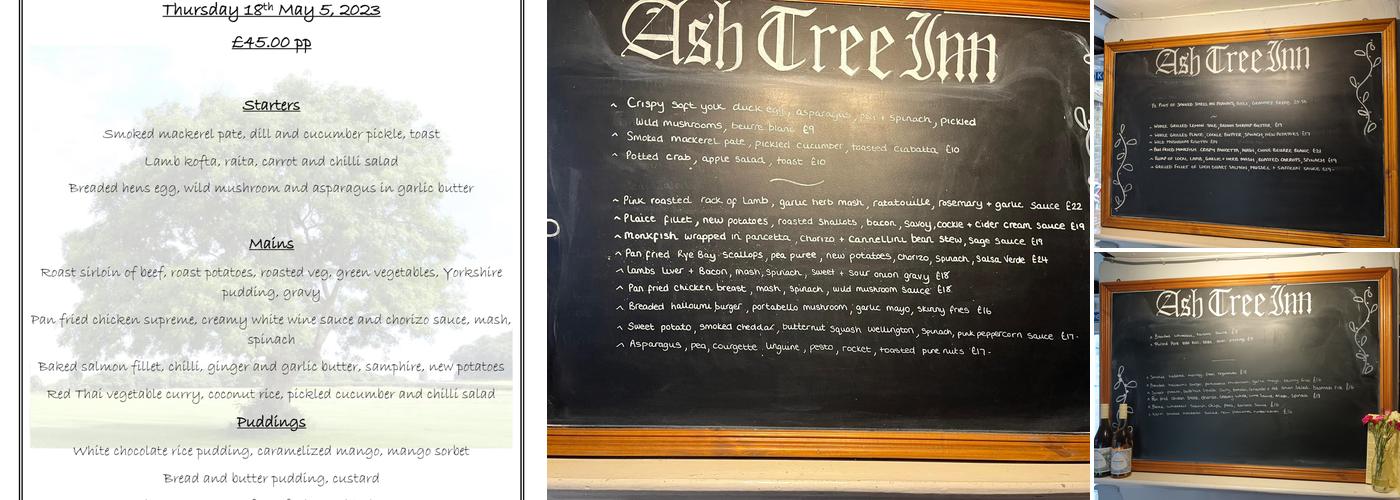 Thursday 18th May 5, 2023
£45.00 pp
Starters
Smoked mackerel pate, dill and cucumber pickle, toast
Lamb kofta, raita, carrot and chilli salad
Breaded hens egg, wild mushroom and asparagus in garlic butter
Mains
Roast sirloin of beef, roast potatoes, roasted veg, green vegetables, Yorkshire
pudding, gravy
Pan fried chicken supreme, creamy white wine sauce and chorizo sauce, mash,
spinach
Baked salmon fillet, chilli, ginger and garlic butter, samphire, new potatoes
Red Thai vegetable curry, coconut rice, pickled cucumber and chilli salad
Puddings
White chocolate rice pudding, caramelized mango, mango sorbet
Bread and butter pudding, custard
Ash Tree Inn
^ Crispy soft yolk duck egg, asparagus, pea + spinach, pickled
wild mushrooms, beurre blanc £9
^ Smoked mackerel pate, pickled cucumber, toasted ciabatta £10
^ Potted crab, apple salad, toast £10
^ Pink roasted rack of lamb, garlic herb mash, ratatouille, rosemary + garlic sauce £22
^ Plaice fillet, new potatoes, roasted shallots, bacon, savoy, cockle + cider cream sauce £19
^ Monkfish wrapped in pancetta, chorizo + cannellini bean stew, sage sauce £19
^ Pan fried Rye Bay scallops, pea puree, new potatoes, chorizo, spinach, salsa verde £24
^ lambs liver + Bacon, mash, spinach, sweet + sour onion gravy £18
^ Pan fried chicken breast, mash, spinach, wild mushroom sauce £18
^ Breaded halloumi burger, portabello mushroom, garlic mayo, skinny fries £16
^ Sweet potato, smoked cheddar, butternut squash wellington, spinach, pink peppercorn sauce £17-
^ Asparagus, pea, courgette linguine, pesto, rocket, toasted pine nuts £17-
Ash Tree Inn
^ Whole grilled lemon sole, brown shrimp butter, £19
^ Whole grilled plaice, cockle butter, spinach, new potatoes £19
^ Wild mushroom risotto
^ Pan fried monkfish, crispy pancetta, mash,
^ Rump of local lamb, garlic + herb mash, roasted carrots, spinach £19
^ Grilled fillet of loch duart salmon, mussel + saffron sauce £19-
Ash Tree Inn